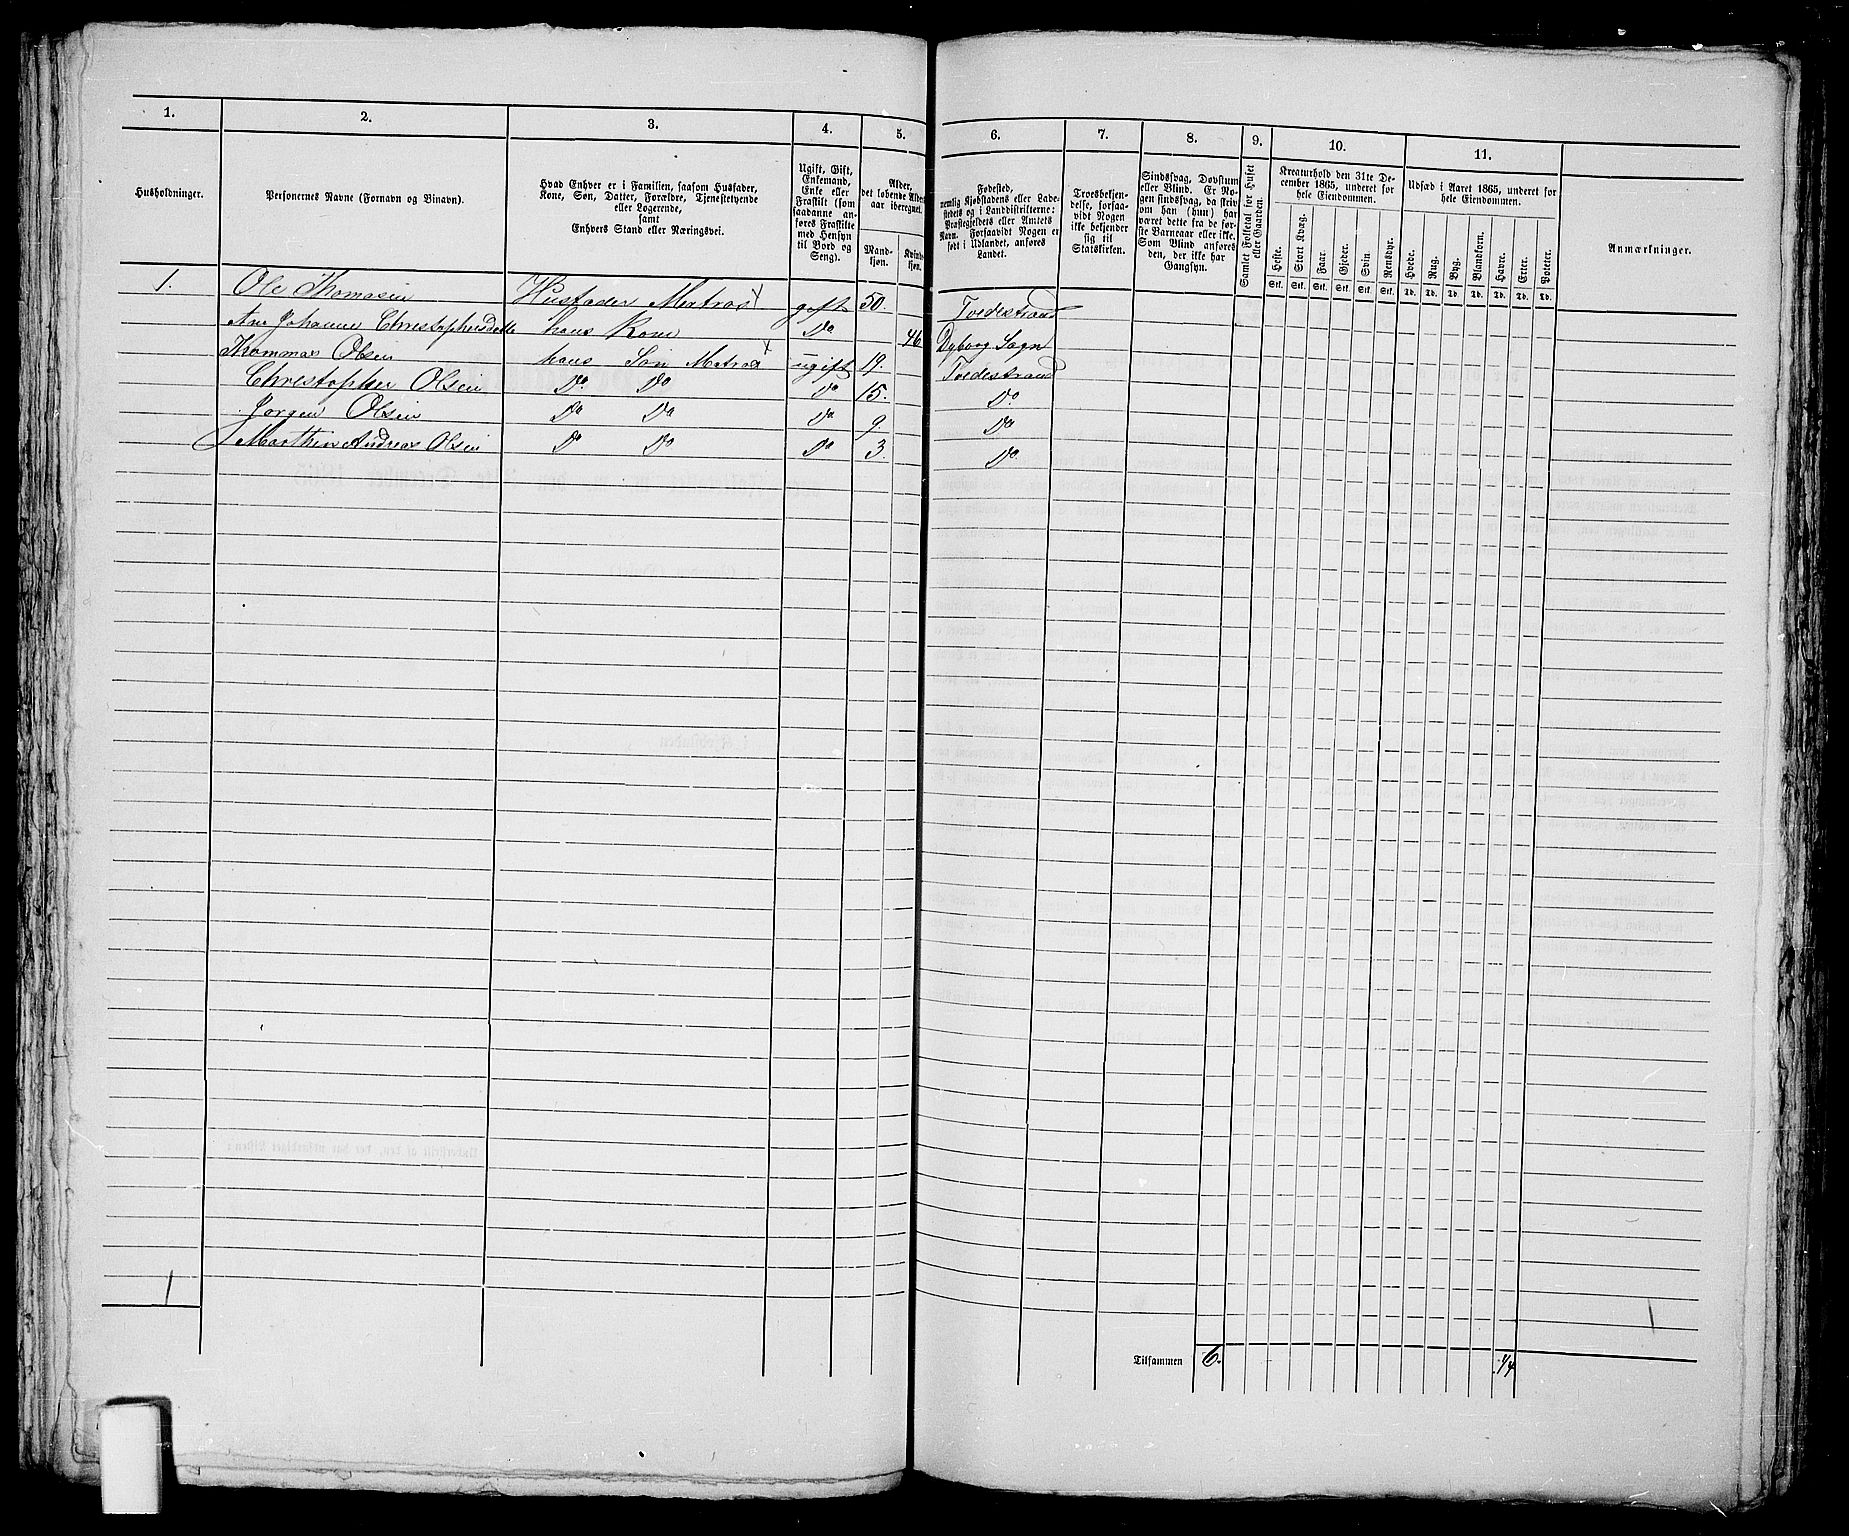 1. 2. 3. 4. 5. 6. 7. 8. 9. 10. 11.
Husholdninger.
Personernes Navne (Fornavn og Binavn).
Hvad Enhver er i Familien, saasom Husfader,
Kone, Søn, Datter, Forældre, Tjenestetyende
eller Logerende,
samt
Enhvers Stand eller Næringsvei.
Ugift, Gift,
Enkemand,
Enke eller
Fraskilt (som
saadanne an-
føres Fraskilte
med Hensyn
til Bord og
Seng).
Alder,
det løbende Alders-
aar iberegnet.
Mand-
kjøn.
Kvinde-
kjøn.
Fødested,
nemlig Kjøbstadens eller Lade-
stedets og i Landdistrikterne:
Præstegjeldets eller Amtets
Navn. Forsaavidt Nogen er
født i Udlandet, anføres
Landet.
Troesbekjen-
delse, forsaa-
vidt Nogen
ikke bekjender
sig til
Statskirken.
Sindssvag, Døvstum
eller Blind. Er No-
gen sindssvag, da skriv
om han (hun) har
været dette fra de før-
ste Barneaar eller ikke.
Som Blind anføres
den, der ikke har
Gangsyn.
Samlet Folketal for Huset
eller Gaarden.
Kreaturhold den 31te De-
cember 1865, underet for
hele Eiendommen.
Heste. Stort Kvæg. Faar. Gjeder. Svin. Rensdyr.
Stk. Stk. Stk. Stk. Stk. Stk.
Udsæd i Aaret 1865, underet for
hele Eiendommen.
Hvede. Rug. Byg. Blandkorn. Havre. Erter. Poteter.
Td. Td. Td. Td. Td. Td. Td.
Anmærkninger.
1. Ole Thomasen Husfader Matros x gift 50. Tvedestrand
Ane Johanne Christophersdatte hans Kone Do 46 Dybvog Sogn
Thommas Olsen hans Søn Matros x ugift 19. Tvedestrand
Christopher Olsen Do. Do Do 15. Do.
Jørgen Olsen Do Do Do 9. Do
Marthin Andreas Olsen Do Do Do 3. Do.
1 1
Tilsammen 6. 1/4